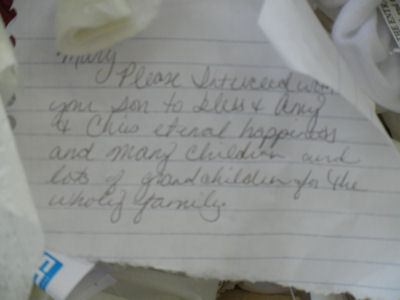 Mary
Please Interceed with
your son to bless & Amy
& Chris eternal happiness
and many children and
lots of grandchildren for the
wholly family.